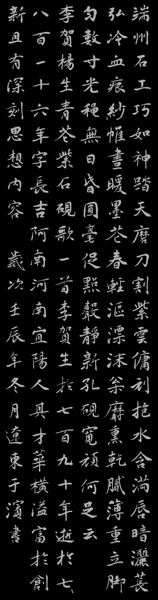 端州石工巧如神踏天磨刀割紫雲傭刓抱水含滿唇暗灑萇
弘冷血痕紗帷晝暖墨花春輕漚漂沫松麝薰乾膩薄重立脚
勻數寸光秋無日昏圓毫促點聲靜新孔硯寬頑何足云
李賀楊生青花紫石硯歌一首李賀生於七百九十年逝於七
八百一十六年字長吉阿南河南宜陽人具才華橫溢富於創
新且有深刻思想內容 歲次壬辰年冬月遼東于濱書